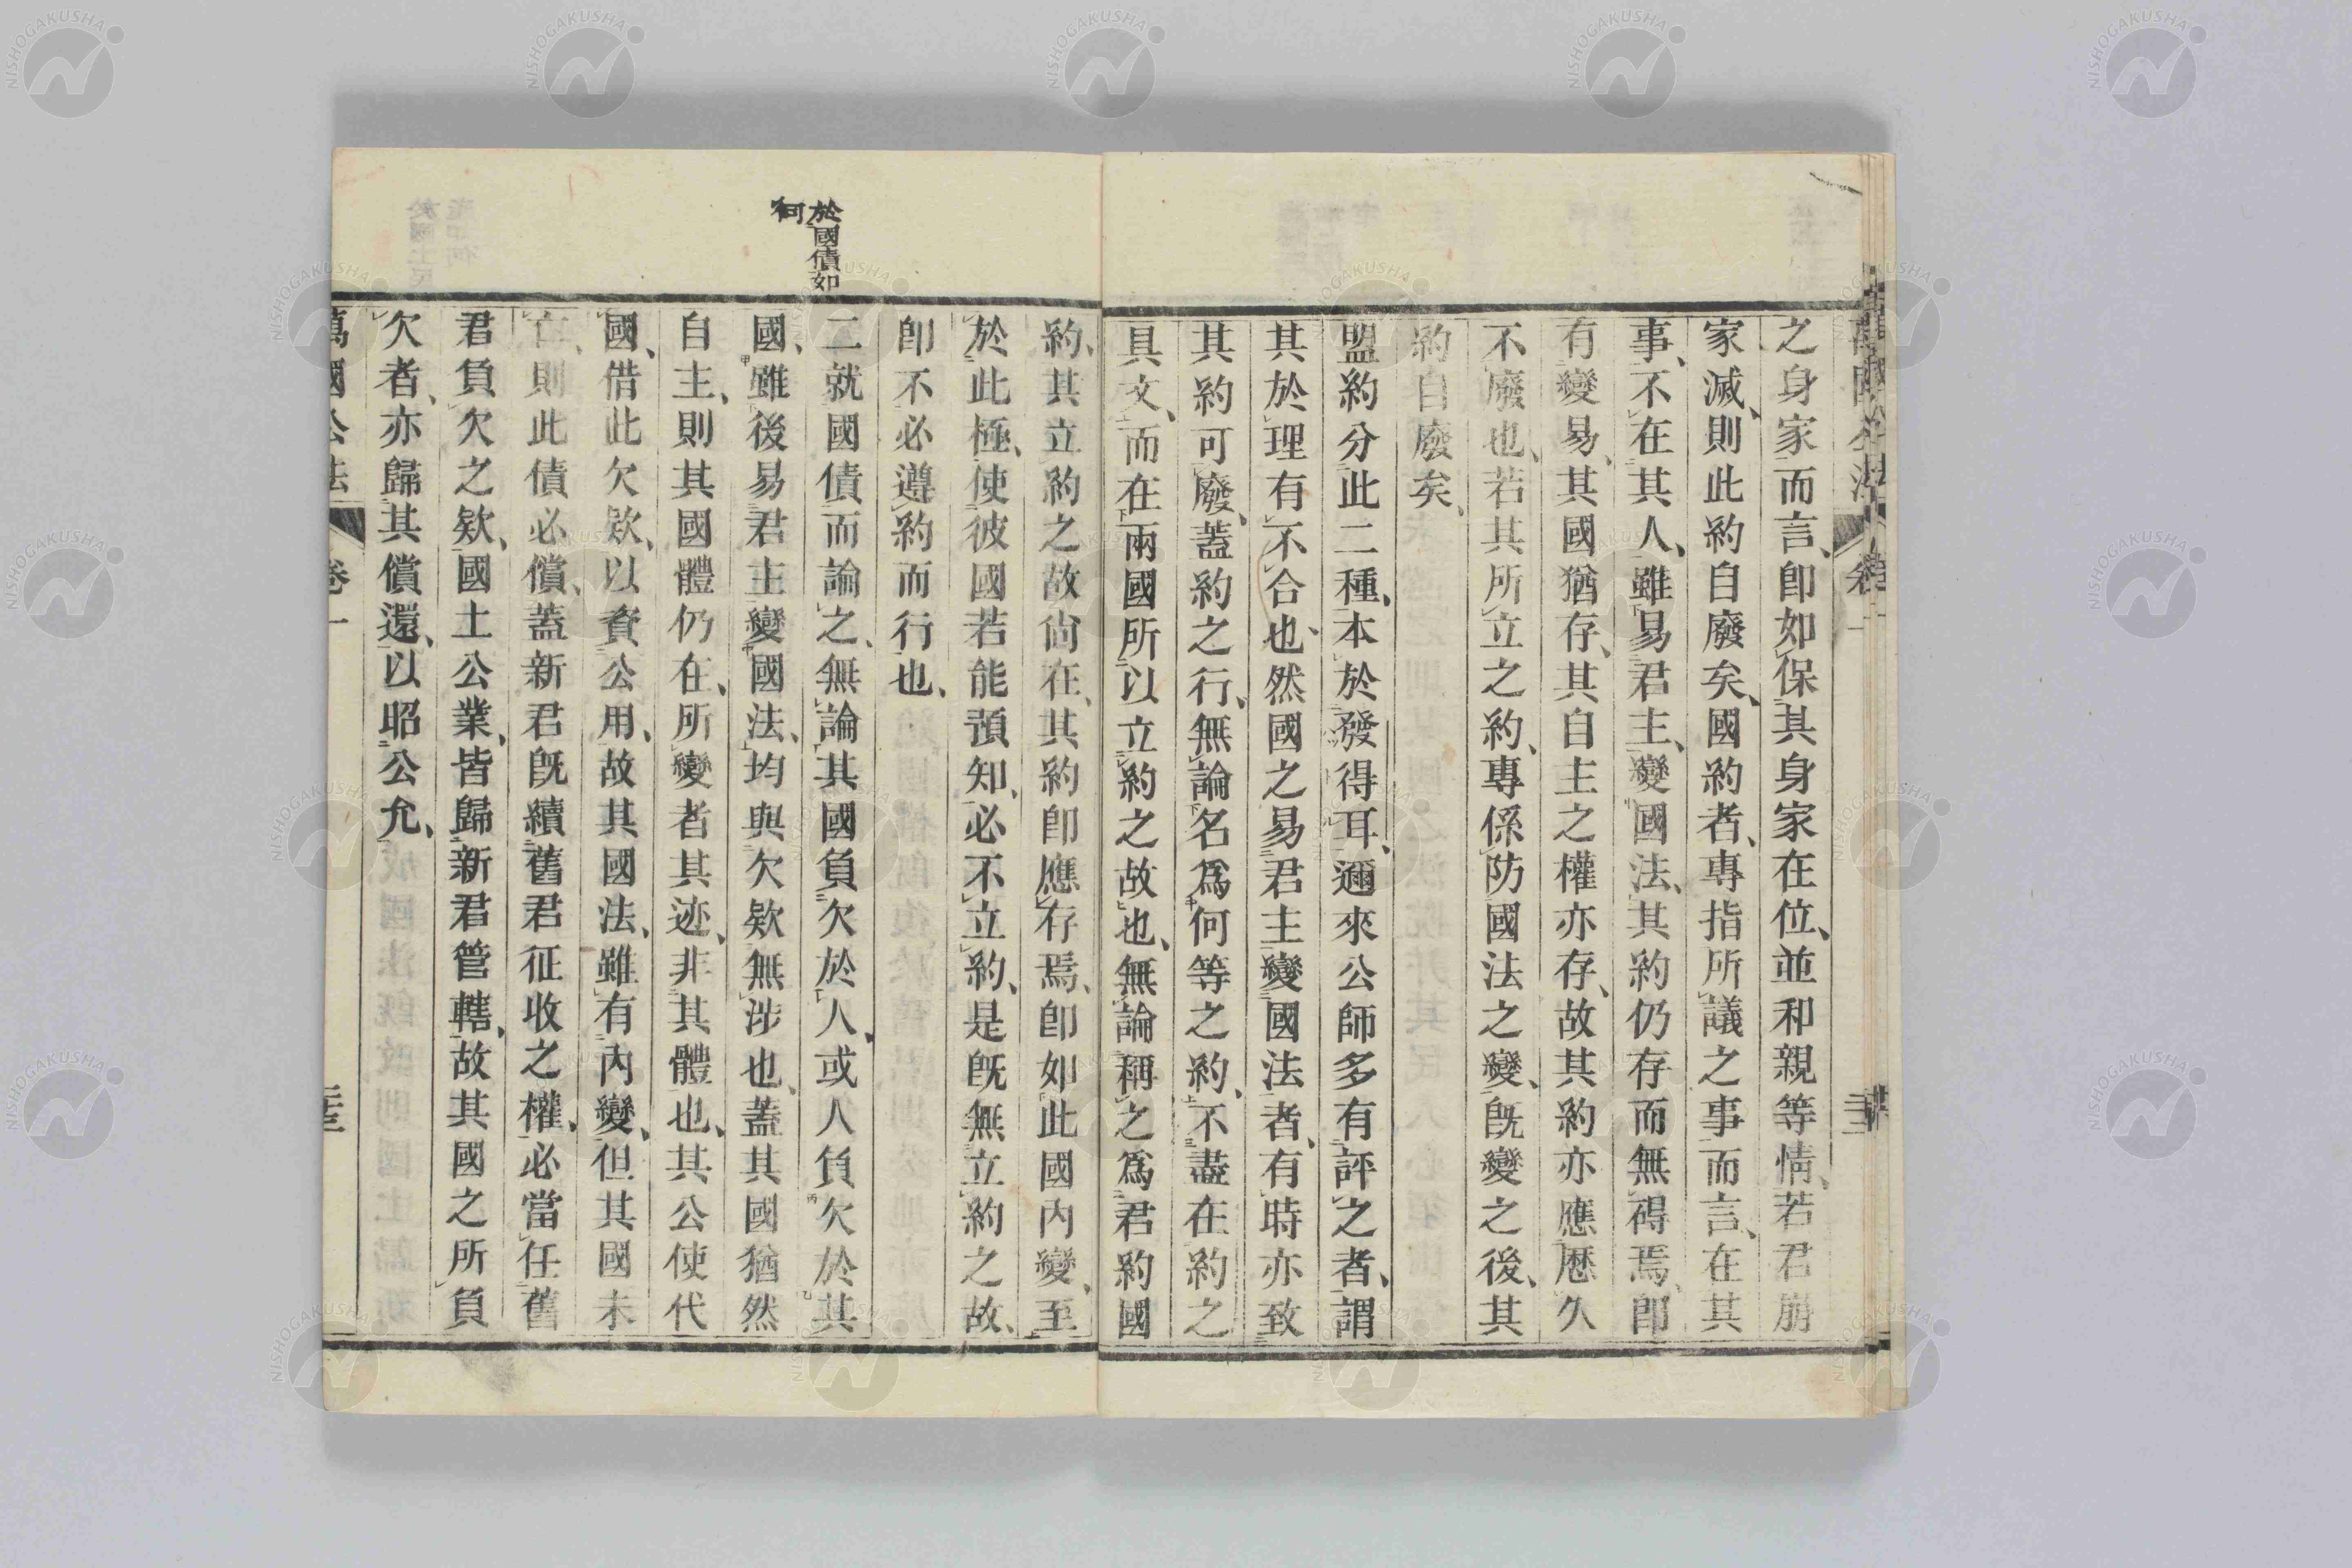 之身家而言、卽如保其身家在位、並和親等情、若君崩
家滅、則此約自廢矣、國約者、專指所議之事而言、在其
事、不在其人、雖易君主、變國法、其約仍存而無碍焉、卽
有變易、其國猶存、其自主之權亦存、故其約亦應歷久
不廢也、若其所立之約、專係防國法之變、旣變之後、其
約自廢矣、
盟約分此二種、本於發得耳、邇來公師多有評之者、謂
其於理有不合也、然國之易君主變國法者、有時亦致
其約可廢、蓋約之行、無論名爲何等之約、不盡在約之
具文、而在兩國所以立約之故也、無論稱之爲君約國
約、其立約之故尙在、其約卽應存焉、卽如此國內變、至
於此極、使彼國若能預知、必不立約、是旣無立約之故、
卽不必遵約而行也、
於國債如
何
二就國債而論之、無論其國負欠於人、或人負欠於其
國、雖後易君主變國法、均與欠欵無涉也、蓋其國猶然
自主、則其國體仍在、所變者其迹、非其體也、其公使代
國、借此欠欵、以資公用、故其國法、雖有內變、但其國未
亡、則此債必償、蓋新君旣續舊君征收之權、必當任舊
君負欠之欵、國土公業、皆歸新君管轄、故其國之所負
欠者、亦歸其償還、以昭公允、
萬國公法 卷一
NISHOGAKUSHA